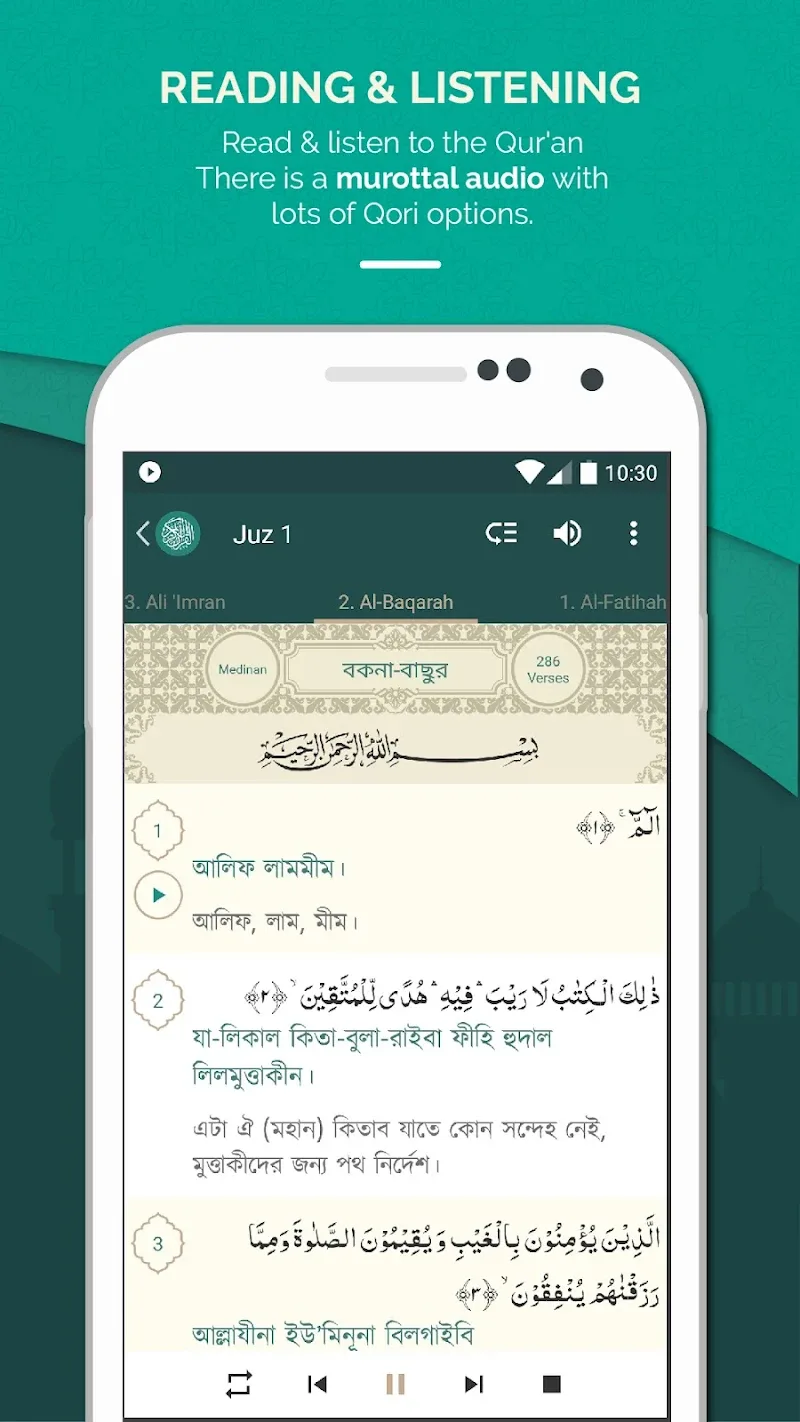 READING & LISTENING
Read & listen to the Qur'an
There is a murottal audio with
lots of Qori options.
10:30
Juz 1
3. Ali 'Imran 2. Al-Baqarah 1. Al-Fatihah
Medinan
বকনা-বাছুর
286
Verses
بِسْمِ اللّٰهِ الرَّحْمٰنِ الرَّحِيْمِ
1
الٓمّٓ ۚ ﴿١﴾
আলিফ লামমীম।
আলিফ, লাম, মীম।
2
ذٰلِكَ الْكِتٰبُ لَا رَيْبَ ۛ فِيْهِ ۛ هُدًى لِّلْمُتَّقِيْنَ ۙ ﴿٢﴾
যা-লিকাল কিতা-বুলা-রাইবা ফীহি হুদাল
লিলমুত্তাকীন।
এটা ঐ (মহান) কিতাব যাতে কোন সন্দেহ নেই,
মুত্তাকীদের জন্য পথ নির্দেশ।
3
الَّذِيْنَ يُؤْمِنُوْنَ بِالْغَيْبِ وَيُقِيْمُوْنَ الصَّلٰوةَ وَمِمَّا
رَزَقْنٰهُمْ يُنْفِقُوْنَ ۙ ﴿٣﴾
আল্লাযীনা ইউ’মিনূনা বিলগাইবি